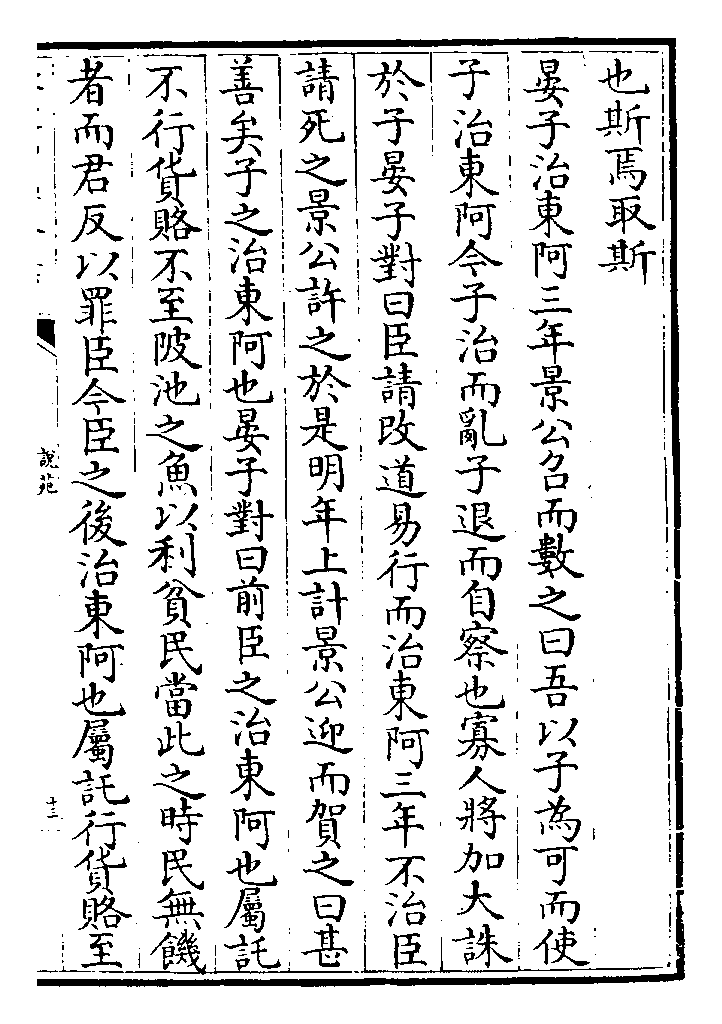 也斯焉取斯
晏子治東阿三年景公召而數之曰吾以子為可而使
子治東阿今子治而亂子退而自察也寡人將加大誅
於子晏子對曰臣請改道易行而治東阿三年不治臣
請死之景公許之於是明年上計景公迎而賀之曰甚
善矣子之治東阿也晏子對曰前臣之治東阿也屬託
不行貨賂不至陂池之魚以利貧民當此之時民無饑
者而君反以罪臣今臣之後治東阿也屬託行貨賂至
說苑
十三